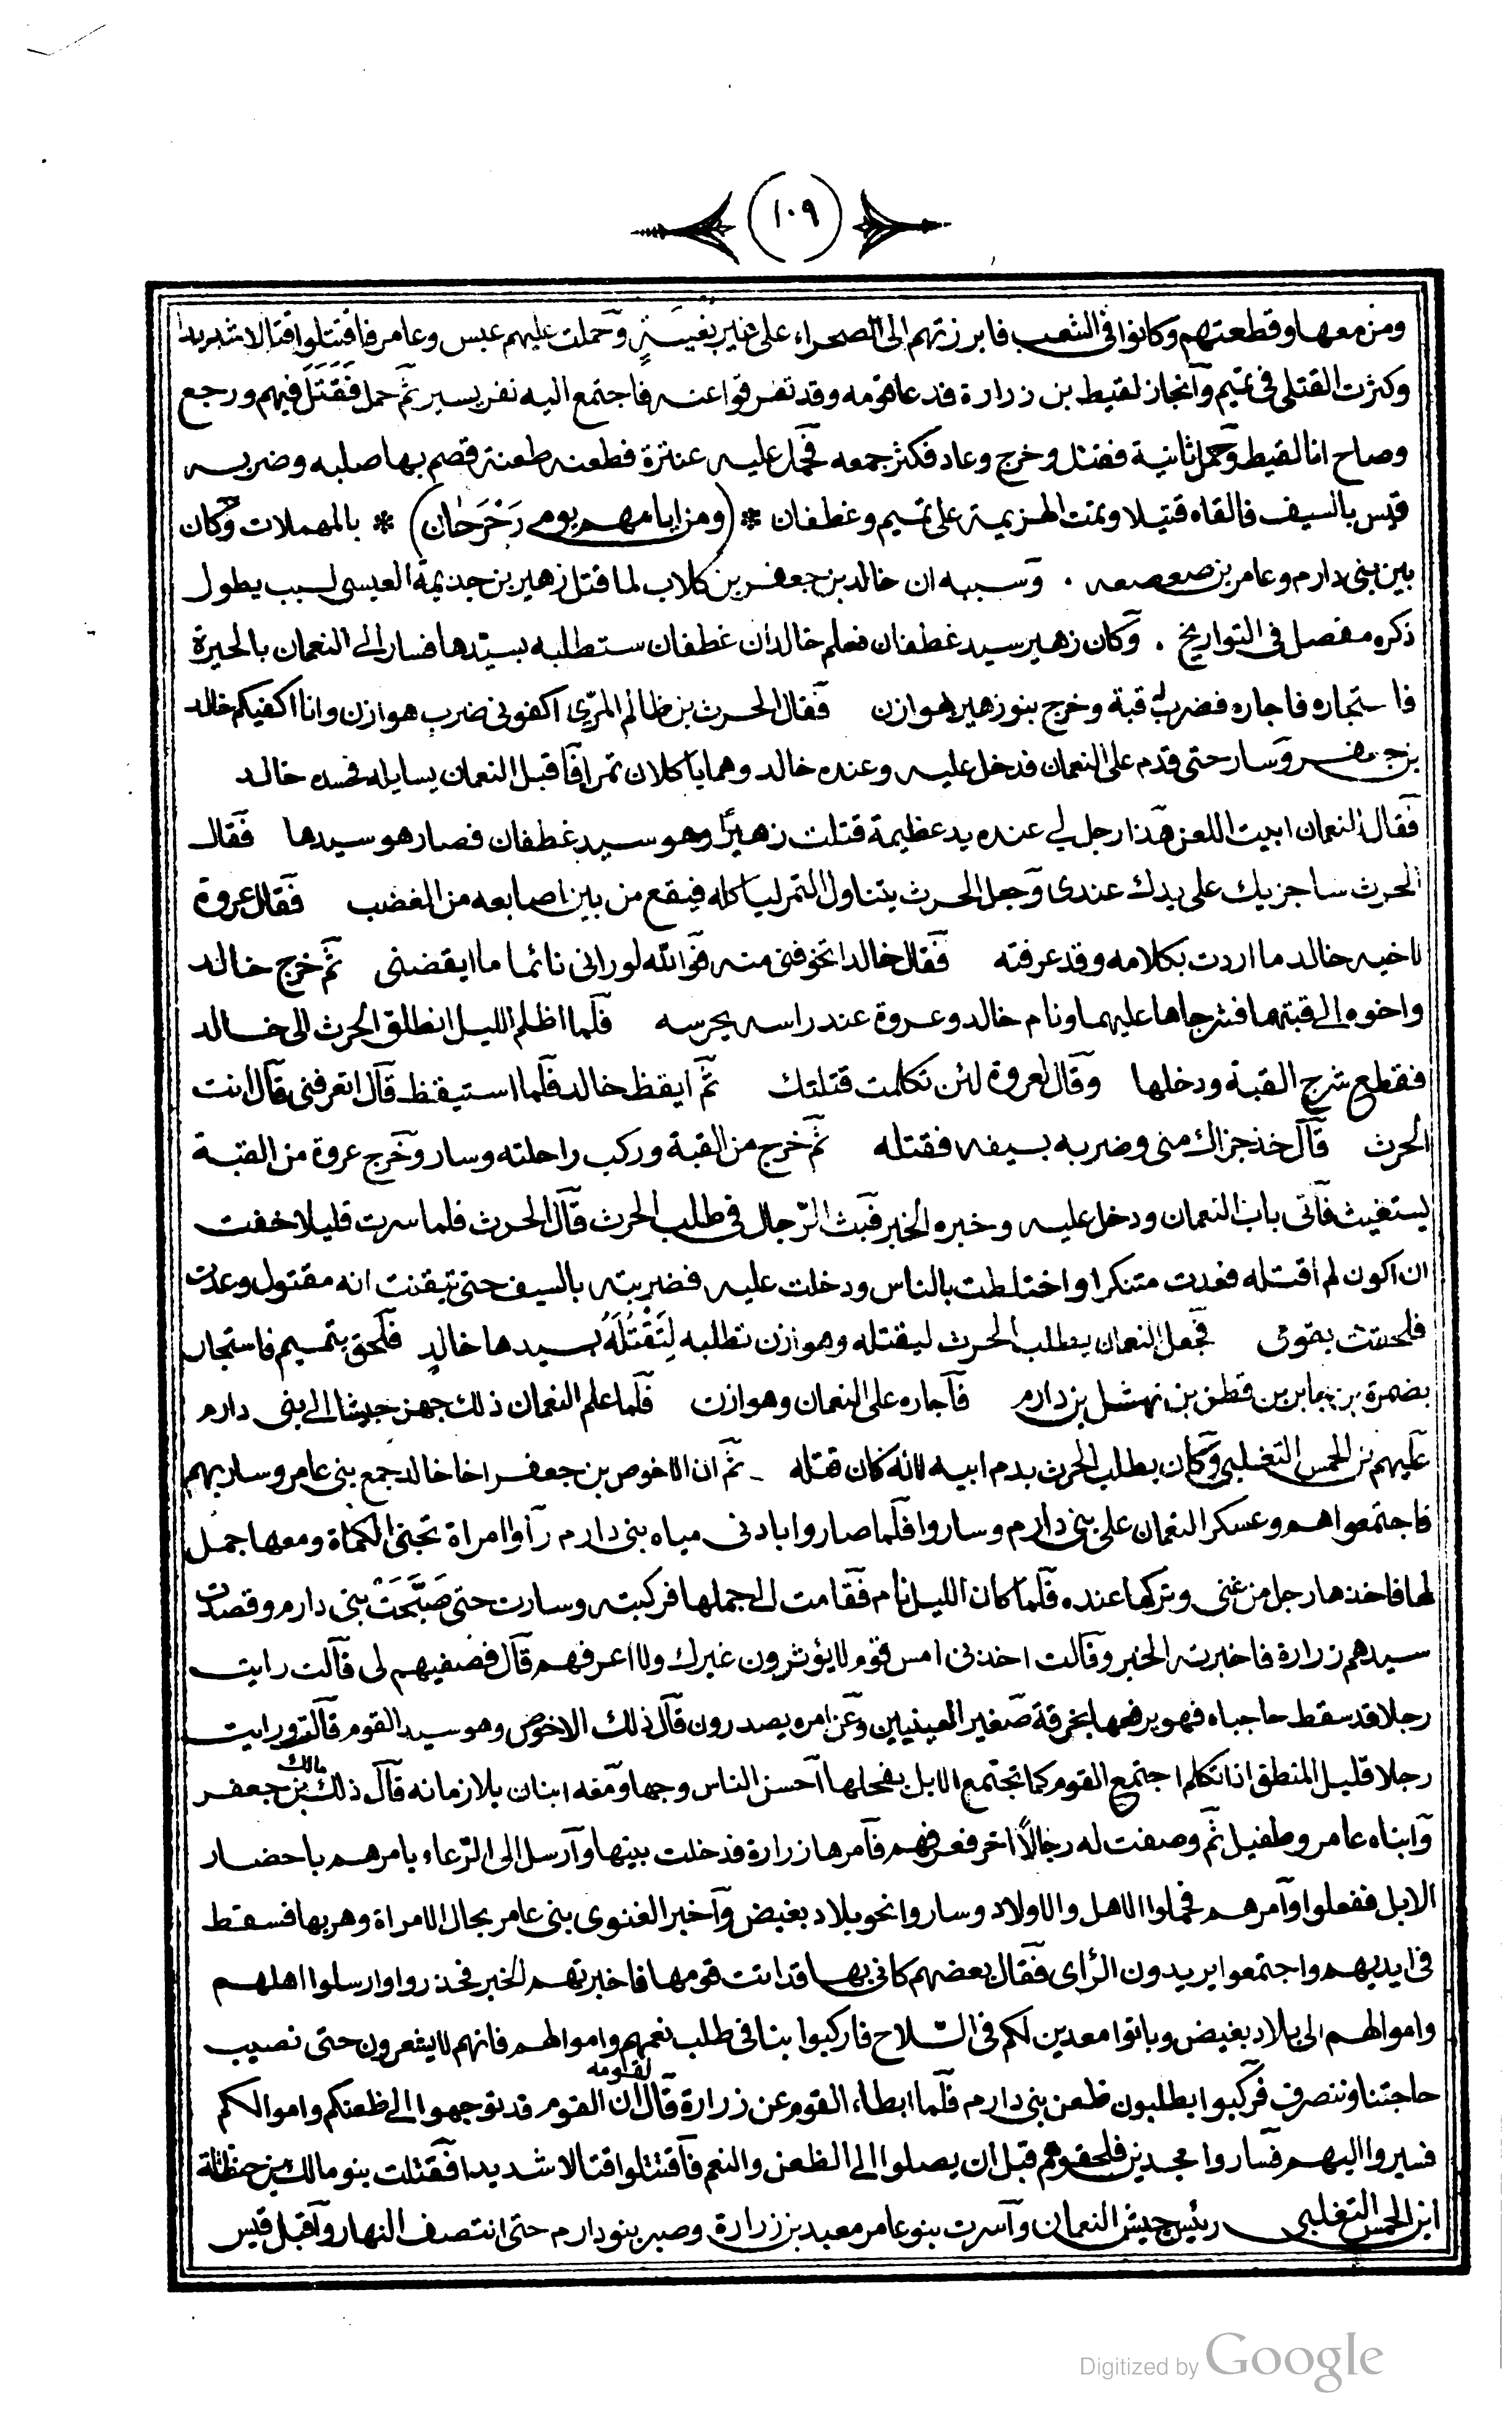 ١٠٩
ومن معها وقطعتهم وكانوا فى الشعب فابرزتهم الى الصحراء على غير تعبيةٍ وحملت عليهم عبس وعامر فاقتتلوا قتالا شديدا
وكثرت القتلى فى تميم وانحاز لقيط بن زرارة فدعا قومه وقد تفرقوا عنه فاجتمع اليه نفر يسير ثم حمل فَقَتَلَ فيهم ورجع
وصاح انا لقيط وحمل ثانية فقتل وخرج وعاد فكثر جمعه فحمل عليه عنترة فطعنه طعنة قصم بها صلبه وضربه
قيس بالسيف فالقاه قتيلا وتمت الهزيمة على تميم وغطفان * (ومن ايامهم يومى رَحْرَحَان) * بالمهملات وكان
بين بنى دارم وعامر بن صعصعه . وسببه ان خالد بن جعفر بن كلاب لما قتل زهير بن جذيمة العبسى لسبب يطول
ذكره مفصل فى التواريخ . وكان زهير سيد غطفان فعلم خالد ان غطفان ستطلبه بسيّدها فسار الى النعمان بالحيرة
فاستجاره فاجاره فضرب له قبة وخرج بنو زهير لهوازن فقال الحرث بن ظالم المرّى اكفونى ضرب هوازن وانا اكفيكم خالد
بن جعفر وسار حتى قدم على النعمان فدخل عليه وعنده خالد وهما ياكلان تمرا فاقبل النعمان يسايله فحسده خالد
فقال النعمان ابيت اللعن هذا رجل لى عنده يد عظيمة قتلت زهيرًا وهو سيد غطفان فصار هو سيدها فقال
الحرث ساجزيك على يدك عندى وجعل الحرث يتناول التمر لياكله فيقع من بين اصابعه من الغضب فقال عروة
لاخيه خالد ما اردت بكلامه وقد عرفته فقال خالد اتخوفنى منه فوالله لو رانى نائما ما ايقضنى ثم خرج خالد
واخوه الى قبتهما فشرجاها عليهما ونام خالد وعروة عند راسه يحرسه فلما اظلم الليل انطلق الحرث الى خالد
فقطع شرج القبة ودخلها وقال لعروة لئن تكلمت قتلتك ثم ايقظ خالد فلما استيقظ قال اتعرفنى قال انت
الحرث قال خذ جزاك منى وضربه بسيفه فقتله ثم خرج من القبة وركب راحلته وسار وخرج عروة من القبة
يستغيث فاتى باب النعمان ودخل عليه وخبره الخبر فبث الرّجال فى طلب الحرث قال الحرث فلما سرت قليلا خفت
ان اكون لم اقتله فعدت متنكرا واختلطت بالناس ودخلت عليه فضربته بالسيف حتى تيقنت انه مقتول وعدت
فلحقت بقومى فجعل النعمان يطلب الحرث ليقتله وهوازن تطلبه لِتَقْتُلَهُ بسيدها خالدٍ فلحق بتميم فاستجار
بضمرة بن جابر بن قطن بن نهشل بن دارم فاجاره على النعمان وهوازن فلما علم النعمان ذلك جهز جيشا الى بنى دارم
عليهم بن الخمس التغلبى وكان يطلب الحرث بدم ابيه لانه كان قتله ثم ان الاخوص بن جعفر اخا خالد جمع بنى عامر وسار بهم
فاجتمعوا هم وعسكر النعمان على بنى دارم وساروا فلما صاروا بادنى مياه بنى دارم رأوا امراة تجنى الكماة ومعها جمل
لها فاخذها رجل من غنى وتركها عنده فلما كان الليل نام فقامت الى جملها فركبته وسارت حتى صَبَّحَتْ بنى دارم وقصدت
سيدهم زرارة فاخبرته الخبر وقالت اخذنى امس قوم لا يؤثرون غيرك ولا اعرفهم قال فصفيهم لى قالت رايت
رجلا قد سقط حاجباه فهو يرفعها بخرقة صغير العينيين وعن امره يصدرون قال ذلك الاخوص وهو سيد القوم قالت ورايت
رجلا قليل المنطق اذا تكلم اجتمع القوم كما تجتمع الابل لفحلها احسن الناس وجها ومعه ابنان يلازمانه قال ذلك مالك بن جعفر
وابناه عامر وطفيل ثم وصفت له رجالاً اخر فعرفهم فامرها زرارة فدخلت بيتها وارسل الى الرّعاء يامرهم باحضار
الابل ففعلوا وآمرهم فحملوا الاهل والاولاد وساروا نحو بلاد بغيض واخبر الغنوى بنى عامر بحال الامراة وهربها فسقط
فى ايديهم واجتمعوا يريدون الرّاى فقال بعضهم كانى بها قد اتت قومها فاخبرتهم الخبر فحذروا وارسلوا اهلهم
واموالهم الى بلاد بغيض وباتوا معدين لكم فى السّلاح فاركبوا بنا فى طلب نعمهم واموالهم فانهم لا يشعرون حتى نصيب
حاجتنا وننصرف فركبوا يطلبون ظعن بنى دارم فلما ابطاء القوم عن زرارة قال لقومه ان القوم قد توجهوا الى ظعنكم واموالكم
فسيروا اليهم فساروا مجدين فلحقوهم قبل ان يصلوا الى الظعن والنعم فاقتتلوا قتالا شديدا فقتلت بنو مالك بن حنظلة
ابن الخمس التغلبى رئيس جيش النعمان وآسرت بنو عامر معبد بن زرارة وصبر بنو دارم حتى انتصف النهار واقبل قيس
Digitized by Google